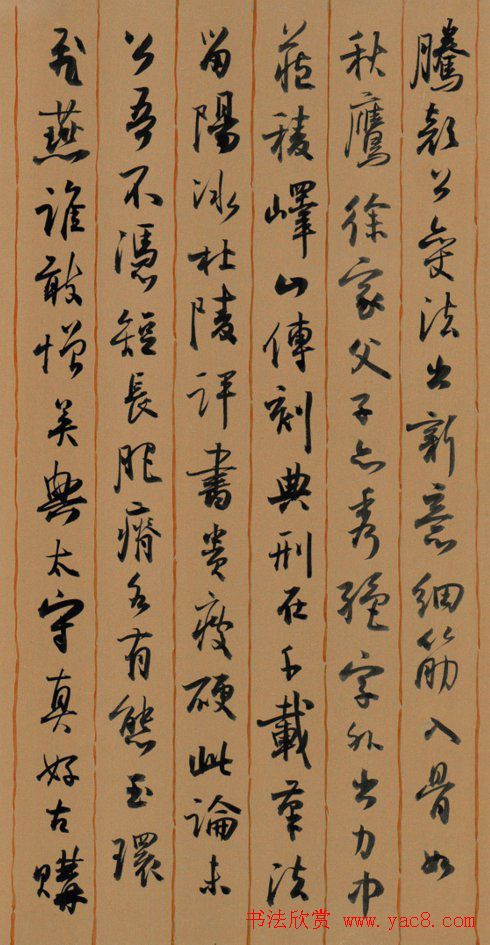 騰顔公變法出新意細筋入骨如
秋鷹徐家父子亦秀絕字外出力中
藏稜嶧山傳刻典刑在千載筆法
留陽冰杜陵評書貴瘦硬此論未
公吾不憑短長肥瘠各有態玉環
飛燕誰敢憎吳興太守真好古購
书法欣赏 www.yac8.com